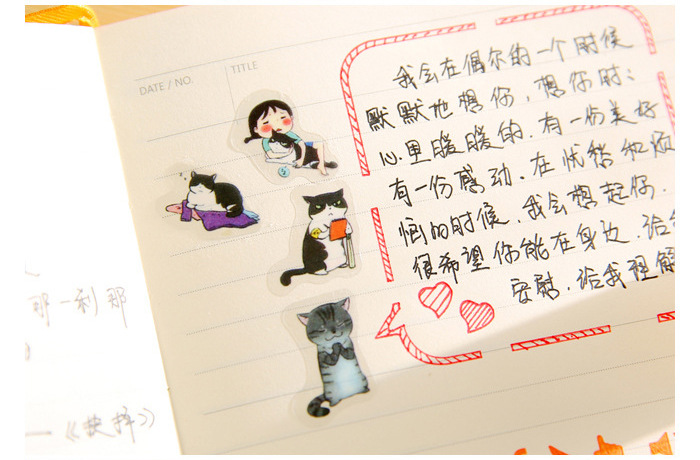 DATE / NO.
TITLE
我会在偶尔的一个时候
默默地想你，想你时：
心里暖暖的．有一份美好
有一份感动．在忧愁和烦
恼的时候．我会想起你．
很希望你能在身边．给我
安慰．给我理解
那一刹那
—《抉择》